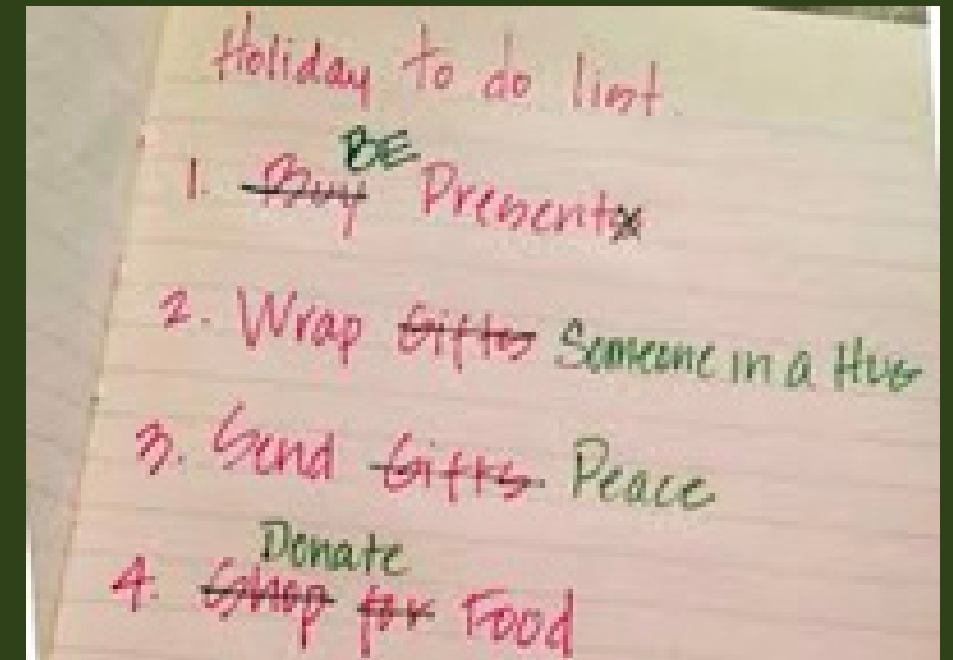 Holiday to do list
1. Buy BE Presents
2. Wrap Gifts Someone in a Hug
3. Send Gifts Peace
Donate
4. Shop for Food